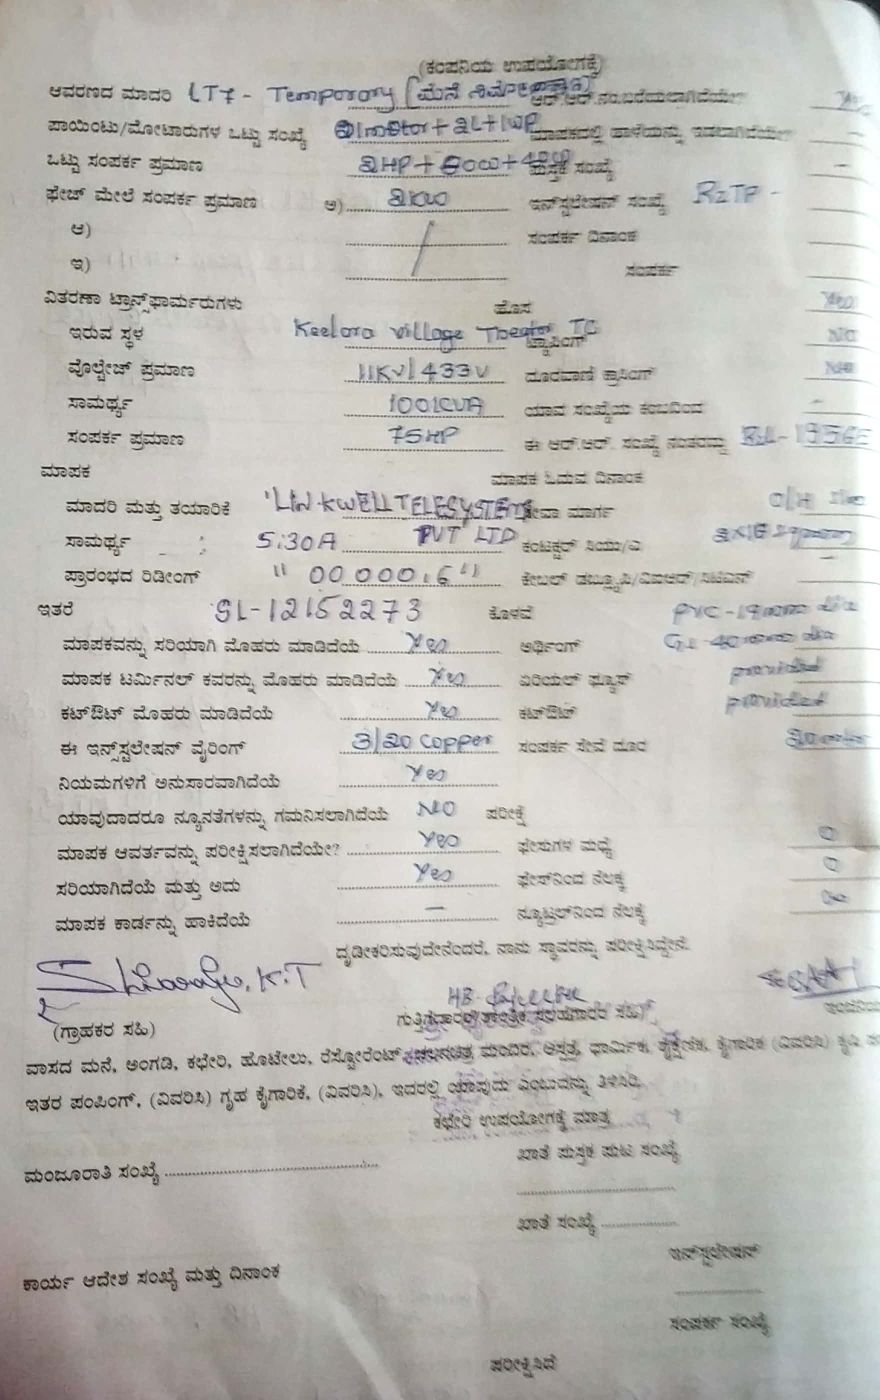 (ಕಂಪನಿಯ ಉಪಯೋಗಕ್ಕೆ)
ಆವರಣದ ಮಾದರಿ LT7 - Temporary [ಮನೆ ಆರ್.ಆರ್.ನಂ.ಬರೆಯಲಾಗಿದೆಯೇ Yes
ಪಾಯಿಂಟು/ಮೋಟಾರುಗಳ ಒಟ್ಟು ಸಂಖ್ಯೆ 1motor+2L+1WP ಮಾಪಕದಲ್ಲಿ ಹಾಳೆಯನ್ನು ಇಡಲಾಗಿದೆಯೇ -
ಒಟ್ಟು ಸಂಪರ್ಕ ಪ್ರಮಾಣ 2HP+ ಪುಸ್ತಕ ಸಂಖ್ಯೆ -
ಫೇಜ್ ಮೇಲೆ ಸಂಪರ್ಕ ಪ್ರಮಾಣ ಅ) 2KW ಇನ್‌ಸ್ಟಲೇಷನ್ ಸಂಖ್ಯೆ RzTP -
ಆ) ಸಂಪರ್ಕ ದಿನಾಂಕ
ಇ) ಸಂಪರ್ಕ
ವಿತರಣಾ ಟ್ರಾನ್ಸ್‌ಫಾರ್ಮರುಗಳು ಹೊಸ Yes
ಇರುವ ಸ್ಥಳ Keelara Village TC ಟ್ಯಾಪಿಂಗ್ No
ವೋಲ್ಟೇಜ್ ಪ್ರಮಾಣ 11KV/433V ದೂರವಾಣಿ ಕ್ರಾಸಿಂಗ್ No
ಸಾಮರ್ಥ್ಯ 100KVA ಯಾವ ಸಂಖ್ಯೆಯ ಕಂಬದಿಂದ -
ಸಂಪರ್ಕ ಪ್ರಮಾಣ 75HP ಈ ಆರ್.ಆರ್. ಸಂಖ್ಯೆ ನಂತರದ್ದು
ಮಾಪಕ ಮಾಪಕ ಓದುವ ದಿನಾಂಕ
ಮಾದರಿ ಮತ್ತು ತಯಾರಿಕೆ 'LINKWELL TELESYSTEMS ಸೇವಾ ಮಾರ್ಗ O/H
ಸಾಮರ್ಥ್ಯ : 5:30A PVT LTD ಕಂಟಕ್ಟರ್ ಸಿಯು/ಎ
ಪ್ರಾರಂಭದ ರಿಡೀಂಗ್ " 00000.6" ಕೇಬಲ್ ಡಬ್ಲ್ಯೂಪಿ/ವಿಐಆರ್/ಸಿಟಿಎಸ್ -
ಇತರೆ SL-12152273 ಕೊಳವೆ PVC-19mm dia
ಮಾಪಕವನ್ನು ಸರಿಯಾಗಿ ಮೊಹರು ಮಾಡಿದೆಯೆ Yes ಅರ್ಥಿಂಗ್ GI-40mm dia
ಮಾಪಕ ಟರ್ಮಿನಲ್ ಕವರನ್ನು ಮೊಹರು ಮಾಡಿದೆಯೆ Yes ಏರಿಯಲ್ ಫ್ಯೂಸ್ provided
ಕಟ್‌ಔಟ್ ಮೊಹರು ಮಾಡಿದೆಯೆ Yes ಕಟ್‌ಔಟ್ provided
ಈ ಇನ್‌ಸ್ಟಲೇಷನ್ ವೈರಿಂಗ್ 3/20 copper ಸಂಪರ್ಕ ಸೇವೆ ದೂರ
ನಿಯಮಗಳಿಗೆ ಅನುಸಾರವಾಗಿದೆಯೆ Yes
ಯಾವುದಾದರೂ ನ್ಯೂನತೆಗಳನ್ನು ಗಮನಿಸಲಾಗಿದೆಯೆ NO ಪರೀಕ್ಷೆ
ಮಾಪಕ ಆವರ್ತವನ್ನು ಪರೀಕ್ಷಿಸಲಾಗಿದೆಯೇ? Yes ಫೇಸುಗಳ ಮಧ್ಯೆ 0
ಸರಿಯಾಗಿದೆಯೆ ಮತ್ತು ಅದು Yes ಫೇಸ್‌ನಿಂದ ನೆಲಕ್ಕೆ 0
ಮಾಪಕ ಕಾರ್ಡನ್ನು ಹಾಕಿದೆಯೆ - ನ್ಯೂಟ್ರಲ್‌ನಿಂದ ನೆಲಕ್ಕೆ
ದೃಡೀಕರಿಸುವುದೇನೆಂದರೆ, ನಾನು ಸ್ಥಾವರನ್ನು ಪರೀಕ್ಷಿಸಿದ್ದೇನೆ.
K.T
(ಗ್ರಾಹಕರ ಸಹಿ) ಗುತ್ತಿಗೆದಾರರ/ತಾಂತ್ರಿಕ ಸಲಹೆಗಾರರ ಸಹಿ)
ವಾಸದ ಮನೆ, ಅಂಗಡಿ, ಕಛೇರಿ, ಹೊಟೇಲು, ರೆಸ್ಟೋರೆಂಟ್ ಚಲನಚಿತ್ರ ಮಂದಿರ, ಆಸ್ಪತ್ರೆ, ಧಾರ್ಮಿಕ, ಶೈಕ್ಷಣಿಕ, ಕೈಗಾರಿಕೆ (ವಿವರಿಸಿ) ಕೃಷಿ
ಇತರ ಪಂಪಿಂಗ್, (ವಿವರಿಸಿ) ಗೃಹ ಕೈಗಾರಿಕೆ, (ವಿವರಿಸಿ), ಇದರಲ್ಲಿ ಯಾವುದು ಎಂಬುವನ್ನು ತಿಳಿಸಿರಿ.
ಕಛೇರಿ ಉಪಯೋಗಕ್ಕೆ ಮಾತ್ರ
ಖಾತೆ ಪುಸ್ತಕ ಪುಟ ಸಂಖ್ಯೆ
ಮಂಜೂರಾತಿ ಸಂಖ್ಯೆ
ಖಾತೆ ಸಂಖ್ಯೆ
ಇನ್‌ಸ್ಟಲೇಷನ್
ಕಾರ್ಯ ಆದೇಶ ಸಂಖ್ಯೆ ಮತ್ತು ದಿನಾಂಕ
ಸಂಪರ್ಕ ಸಂಖ್ಯೆ
ಪರೀಕ್ಷಿಸಿದೆ